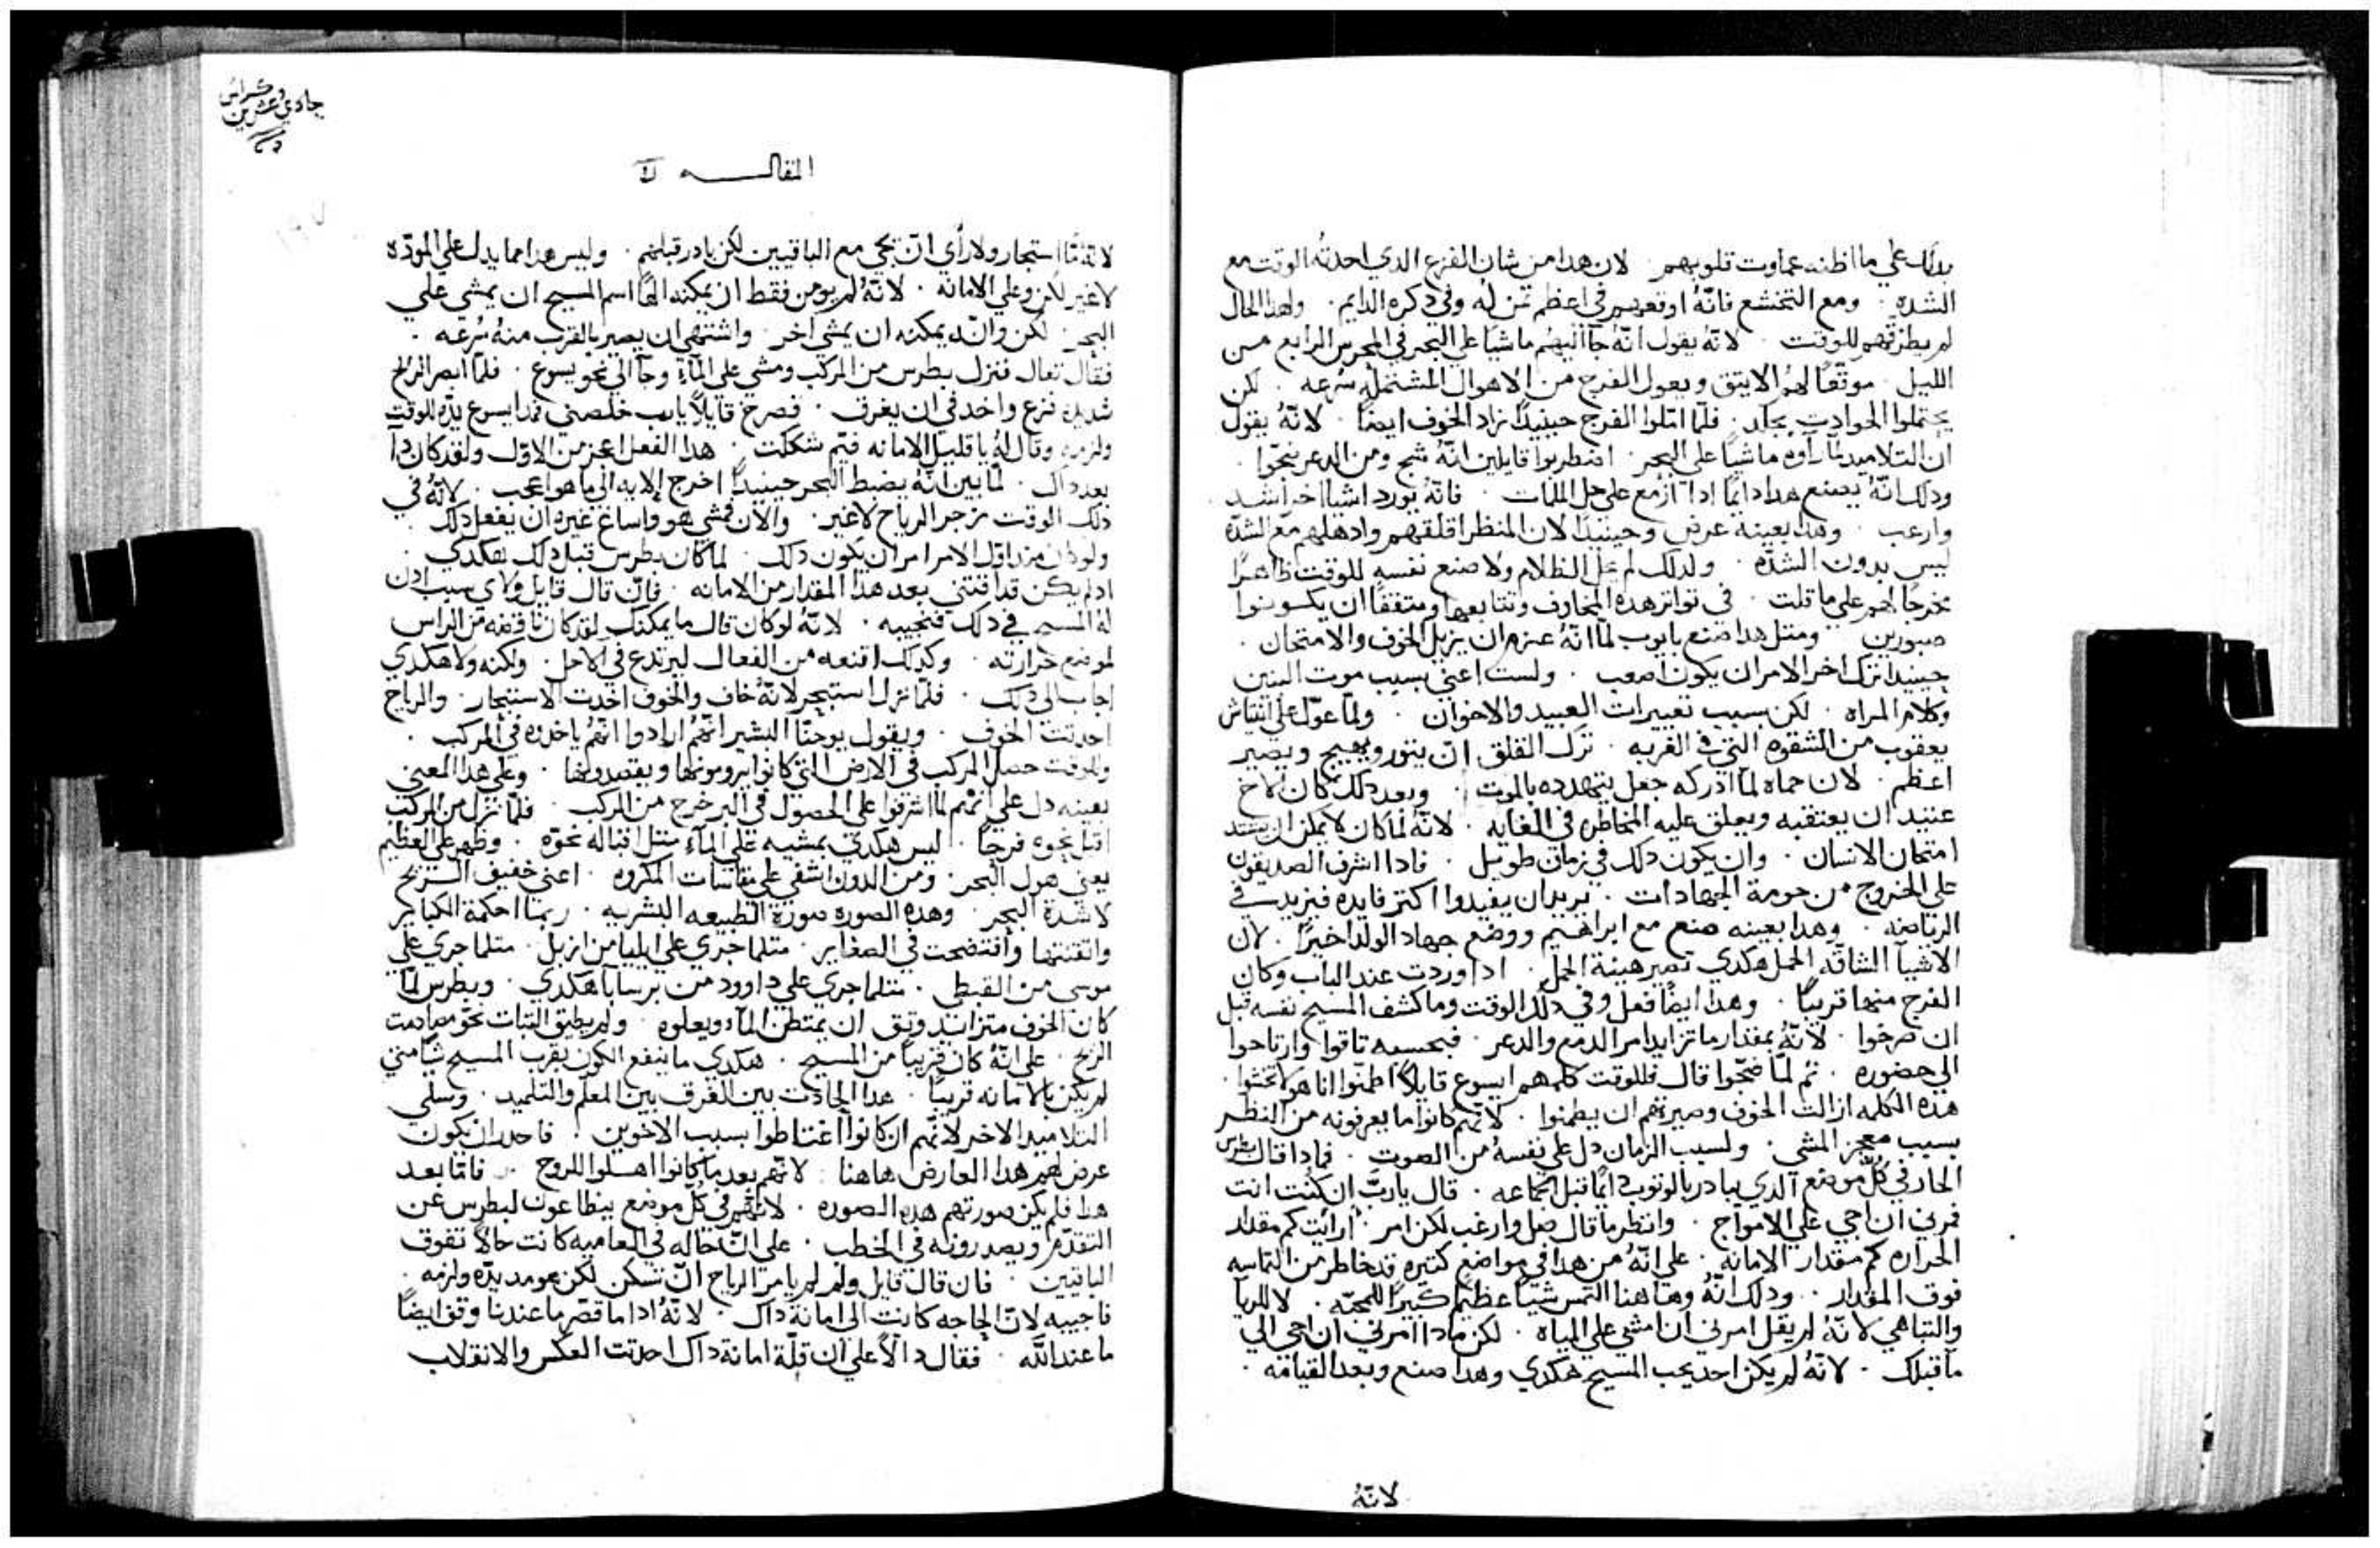 بدلك علي ما اظنه عماوت قلوبهم · لان هدا من شان الفزع الدي احدثه الوقت مع
الشده · ومع التخشع فانّهُ اوقعهم في اعظم تمن له وفي دكره الدايم · ولهدا الحال
لم يطرقهم للوقت · لانّه يقول انّهُ جآ اليهم ماشيًا علي البحر في المحرس الرابع من
الليل موقعًا لهمُ الا يتق ويعول الفرج من الاهوال المشتمله سرعه · لكن
يحتملوا الحوادث بجلد · فلمّا امّلوا الفرج حينيدًا زاد الخوف ايضًا · لانّهُ يقول
ان التلاميد لمّا راوه ماشيًا علي البحر · اضطربوا قايلين انّهُ شبح ومن الدعر ضجّوا ·
ودلك انّهُ يصنع هدا دايمًا ادا ازمع علي حل الملمات · فانّهُ يورد اشيا اخر اشد
وارعب · وهدا بعينه عرض وحينيدًا لان المنظر اقلقهم وادهلهم مع الشدّه
ليس بدون الشدّه · ولدلك لم يحل الظلام ولا صنع نفسه للوقت ظاهرًا
مخرجًا لهم علي ما قلت · في تواتر هده المخاوف وتتابعها ومتقفًا ان يكونوا
صبورين · ومتل هدا صنع بايوب لمّا انّهُ عزم ان يزيل الخوف والامتحان ·
حينيدًا ترك اخر الامر ان يكون اصعب · ولست اعني بسبب موت البنين
وكلام المراه · لكن بسبب تعييرات العبيد والاخوان · ولمّا عوّل علي انتياش
يعقوب من الشقوه التي في الغربه · ترك القلق ان يتور ويهيج ويصير
اعظم · لان حماه لمّا ادركه جعل يتهدده بالموت · وبعد دلك كان الاخ
عتيد ان يعتقبه ويعلق عليه المخاطره في الغايه · لانّه لمّا كان لا يمكن ان يشتد
امتحان الانسان · وان يكون دلك في زمان طويل · فادا اشرف الصديقون
علي الخروج من حومة الجهادات · يريد ان يفيدوا اكتر فايده فيزيد في
الرياضه · وهدا بعينه صنع مع ابراهيم ووضع جهاد الولد اخيرًا · لان
الاشيآ الشاقّه الحمل هكدي تصير هينة الحمل · ادا وردت عند الباب وكان
الفرج منها قريبًا · وهدا ايضًا فعل وفي دلك الوقت وما كشف المسيح نفسه قبل
ان صرخوا · لانّهُ بمقدار ما تزايد امر الدمع والدعر · فبحسبه تاقوا وارتاحوا
الي حضوره · تم لمّا ضجّوا قال فللوقت كلمهم ايسوع قايلًا اطمنّوا انا هو لا تخشوا ·
هده الكلمه ازالت الخوف وصيرتهم ان يطمنوا · لانّهم كانوا ما يعرفونه من النظر
بسبب معجز المشي · ولسبب الزمان دل علي نفسهُ من الصوت · فمادا قال بطرس
الحار في كُلّ موضع الدي يبادر بالوتوب دايمًا قبل الجماعه · قال يا ربّ ان كنت انت
فمرني ان اجي علي الامواج · وانظر ما قال صل وارغب لكن امر · ارايت كم مقدار
الحراره كم مقدار الامانه · علي انّهُ من هدا في مواضع كتيره قد خاطر من التماسه
فوق المقدار · ودلك انّهُ وهاهنا التمس شيًا عظيمًا كبيرًا للمحبّه · لا للريا
والتباهي لانّهُ لم يقل امرني ان امشي علي المياه · لكن مادا امرني ان اجي الي
ما قبلك · لانّهُ لم يكن احد يحب المسيح هكدي وهدا صنع وبعد القيامه ·
لانّهُ
وكراس
حادي وعشرين
المقالــــه
استجار ولا راي ان يجي مع الباقيين لكن بادر قبلهم · وليس هدا مما يدل علي المودّه
لا غير لكن وعلي الامانه · لانّهُ لم يومن فقط ان يمكنه اسم المسيح ان يمشي علي
البحر · لكن وانّه يمكنه ان يمشي اخر · واشتهي ان يصير بالقرب منهُ سُرعه ·
فقال تعال فنزل بطرس من المركب ومشي علي المآء وجآ الي نحو يسوع · فلمّا ابصر الريح
شديده فزع واخد في ان يغرق · فصرخ قايلًا يا رب خلصني فمد ايسوع يدّه للوقت
ولزمه وقال لهُ يا قليل الامانه فيمَ شككت · هدا الفعل اعجز من الاوّل ولقد كان دا
بعد داك · لمّا بين انّهُ يضبط البحر حينيدًا اخرج الايه الي ما هو اعجب · لانّهُ في
دلك الوقت زجر الرياح لا غير · والان فمشي هو واساغ غيره ان يفعل دلك ·
ولو كان من اوّل الامر امر ان يكون دلك · لما كان بطرس قبل دلك هكدي ·
اد لم يكن قد اقتني بعد هدا المقدار من الامانه · فان قال قايل ولاي سبب ادن
لهُ المسيح في دلك فنجيبه · لانّهُ لو كان قال ما يمكنك لقد كان ناقضه من الراس
لموضع حرارته · وكدلك اقنعه من الفعال ليرتدع في الاجل · ولكنه ولا هكدي
اجاب الي دلك · فلمّا نزل استبحر لانّهُ خاف والخوف احدت الاستبحار · والرياح
احدتت الخوف · ويقول يوحنّا البشير انّهمُ ارادوا انّهمُ ياخدوه في المركب ·
وللوقت حصل المركب في الارض التي كانوا يرومونها ويقصدونها · وعلي هدا المعني
بعينه دل علي انّهم لمّا اشرفوا علي الحصول في البر خرج من المركب · فلمّا نزل من المركب
اقبل نحوه فرحًا · ليس هكدي بمشيه علي المآء متل اقباله نحوه · وظهر علي العظيم
يعني هول البحر · ومن الدون اشفي علي مقاسات المكروه · اعني خفيف الريح
لا شدة البحر · وهده الصوره صورة الطبيعه البشريه · ربما احكمة الكباير
واتقنتها وافتضحت في الصغاير · متلما جري علي ايليا من ازبل · متلما جري علي
موسي من القبطي · متلما جري علي داوود من برسابآ هكدي · وبطرس لمّا
كان الخوف متزايد وتق ان يمتطن المآء ويعلوه · ولم يطيق التبات نحو مصادمت
الريح · علي انّهُ كان قريبًا من المسيح · هكدي ما ينفع الكون بقرب المسيح شيًا متي
لم يكن بالامانه قريبًا · هدا الحادت بين الفرق بين المعلم والتلميد · وسلّي
التلاميد الاخر لانّهم ان كانوا اغتاظوا بسبب الاخوين · فاحد ان يكون
عرض لهم هدا العارض هاهنا · لانّهم بعد ما كانوا اهلوا للروح · فامّا بعد
هدا فلم يكن صورتهم هده الصوره · لانّهم في كُل موضع يتطاعون لبطرس عن
التقدّم ويصدرونه في الخطب · علي انّ حاله في العاميه كانت حالًا تفوق
الباقيين · فان قال قايل ولم لم يامر الرياح ان تسكن لكن هو مد يدّه ولزمه ·
فاجيبه لان الحاجه كانت الي امانة داك · لانّهُ ادا ما قصّر ما عندنا وقف ايضًا
ما عند اللّه · فقال دالًا علي ان قلّة امانة داك احدتت العكس والانقلاب